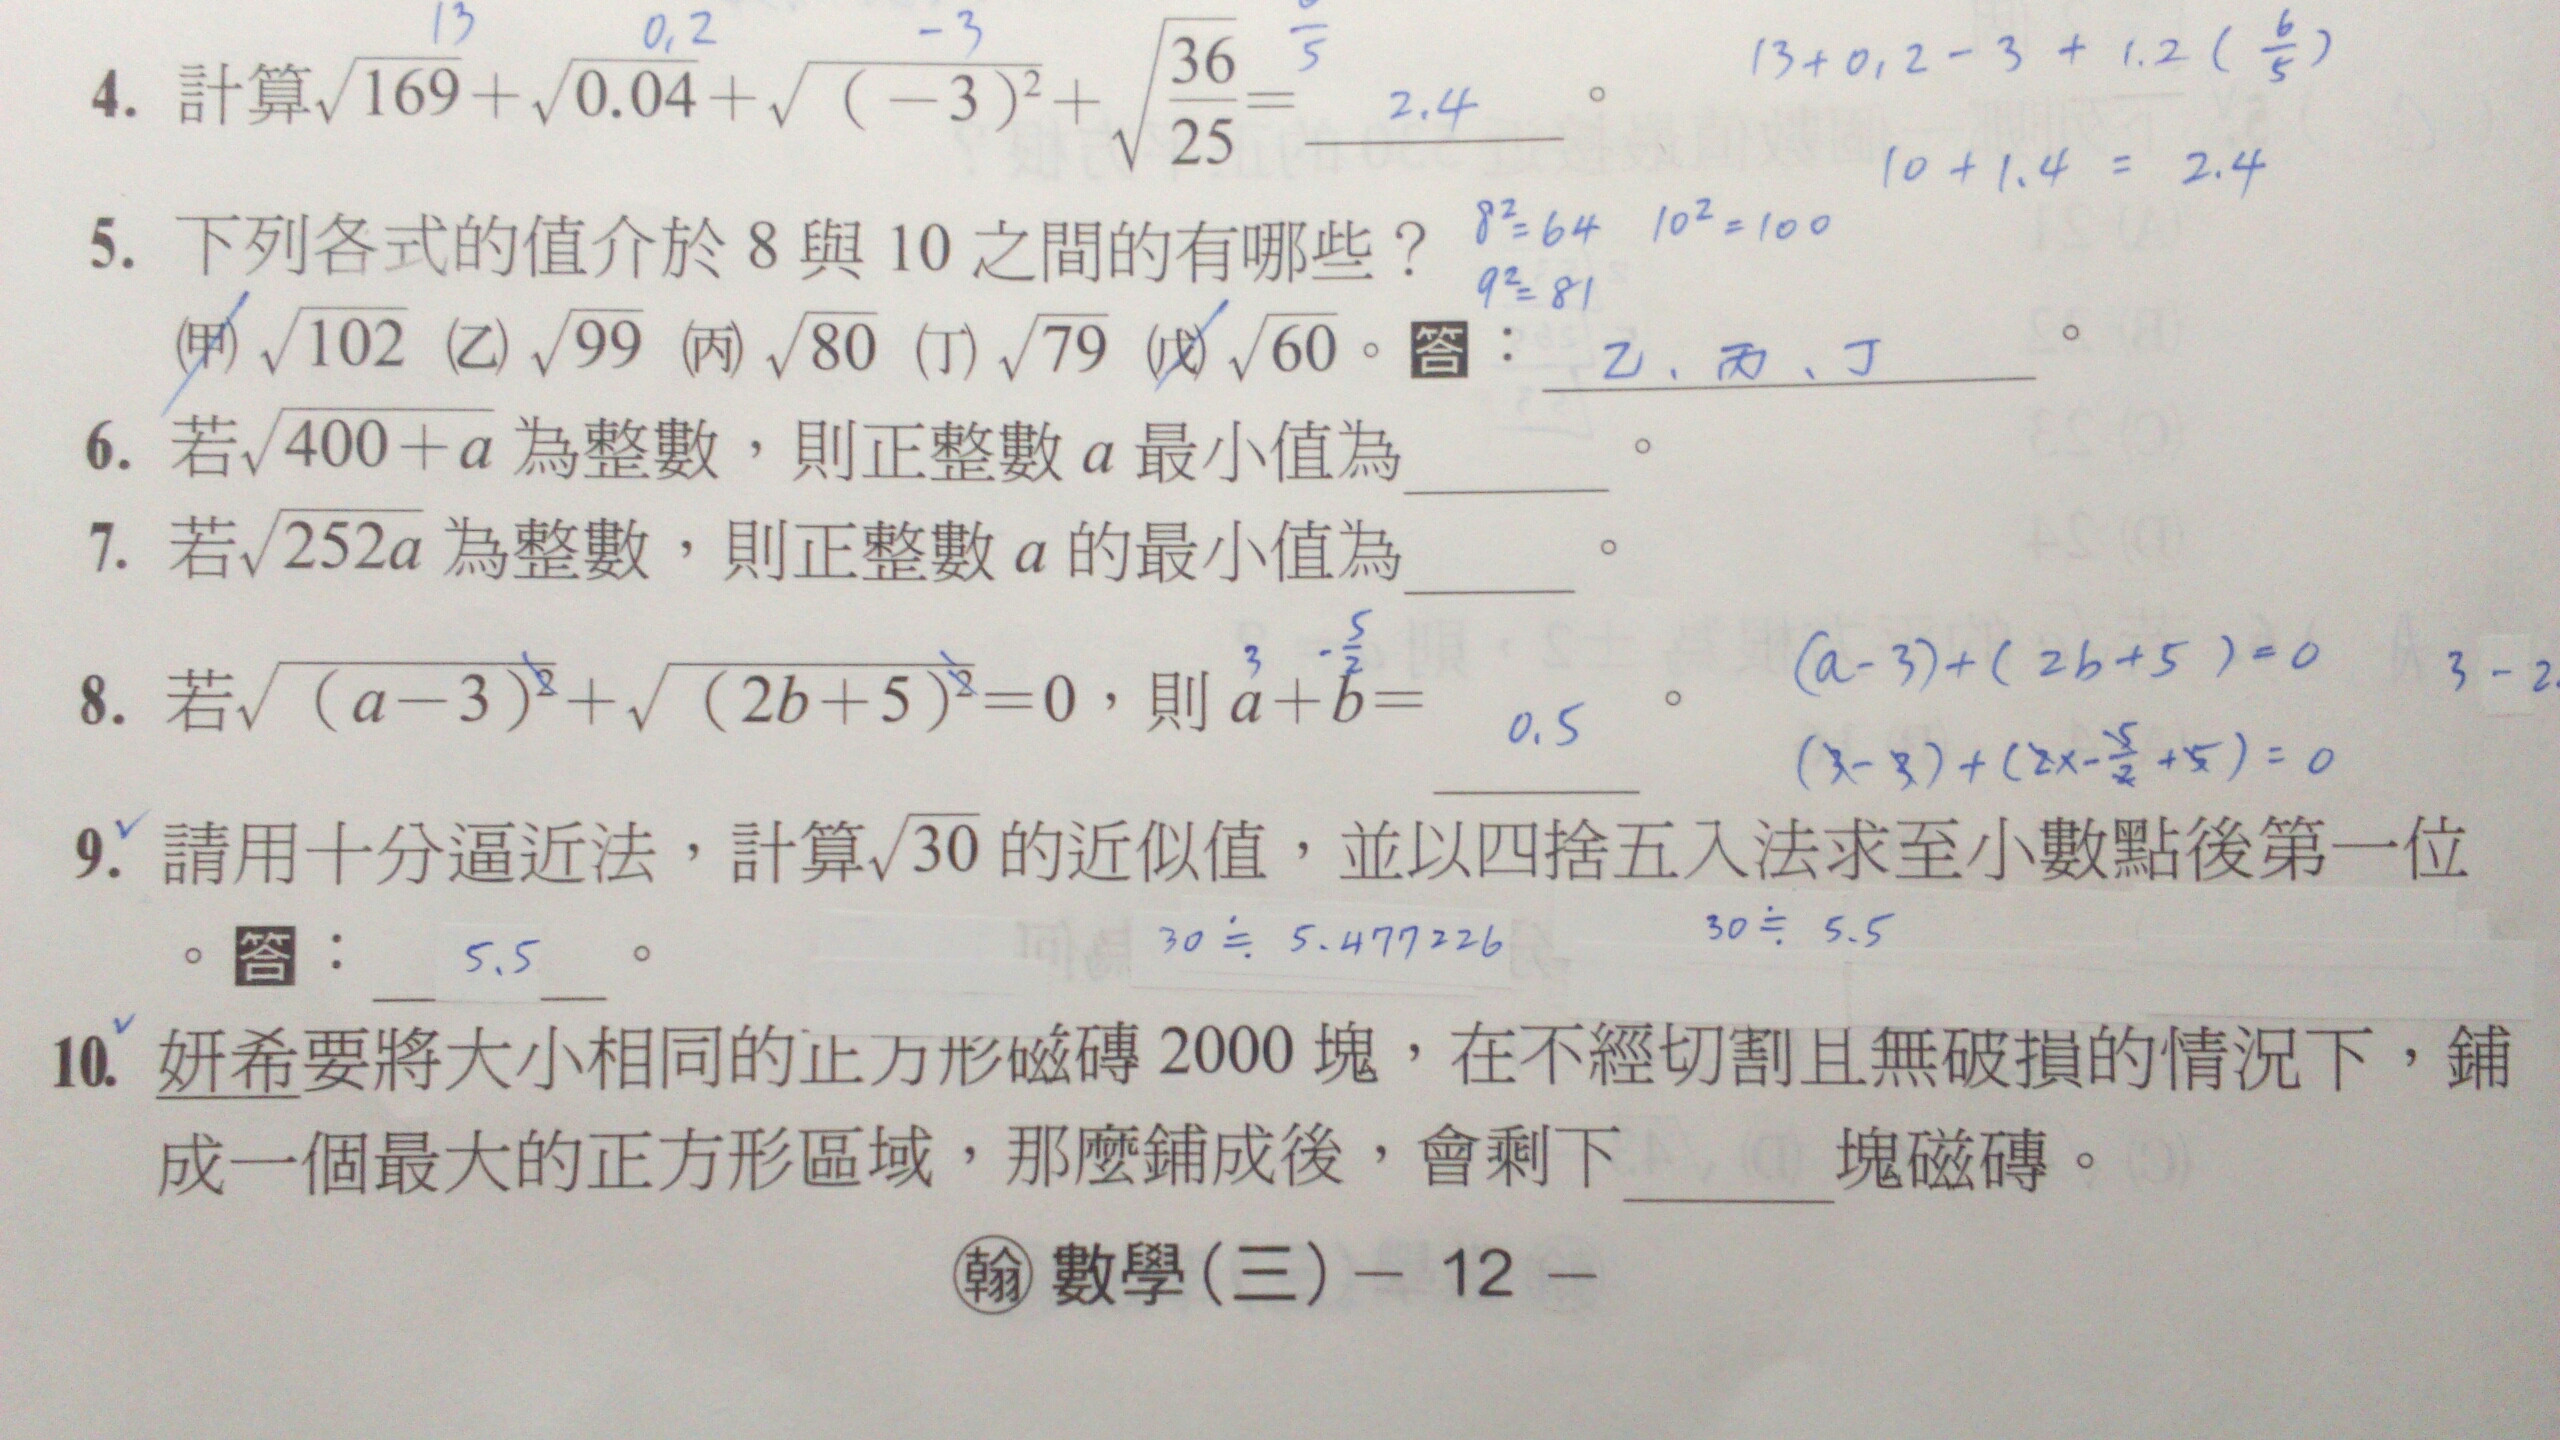 13 0,2 -3 6/5
4. 計算√169+√0.04+√(-3)²+√36/25= 2.4 。 13+0,2-3+1.2(6/5)
10+1.4 = 2.4
5. 下列各式的值介於 8 與 10 之間的有哪些？ 8²=64 10²=100
9²=81
㈙甲 √102 (乙) √99 (丙) √80 (丁) √79 (戊) √60。答：乙、丙、丁。
6. 若√400+a 為整數，則正整數 a 最小值為____。
7. 若√252a 為整數，則正整數 a 的最小值為____。
3 -5/2
8. 若√(a-3)²+√(2b+5)²=0，則 a+b= 0.5 。 (a-3)+(2b+5)=0 3-2.
(3-3)+(2x-5/2+5)=0
9. ✓ 請用十分逼近法，計算√30 的近似值，並以四捨五入法求至小數點後第一位
。答：5.5 。 30≒5.477226 30≒5.5
10. ✓ 妍希要將大小相同的正方形磁磚 2000 塊，在不經切割且無破損的情況下，鋪
成一個最大的正方形區域，那麼鋪成後，會剩下____塊磁磚。
翰 數學(三)－ 12 －